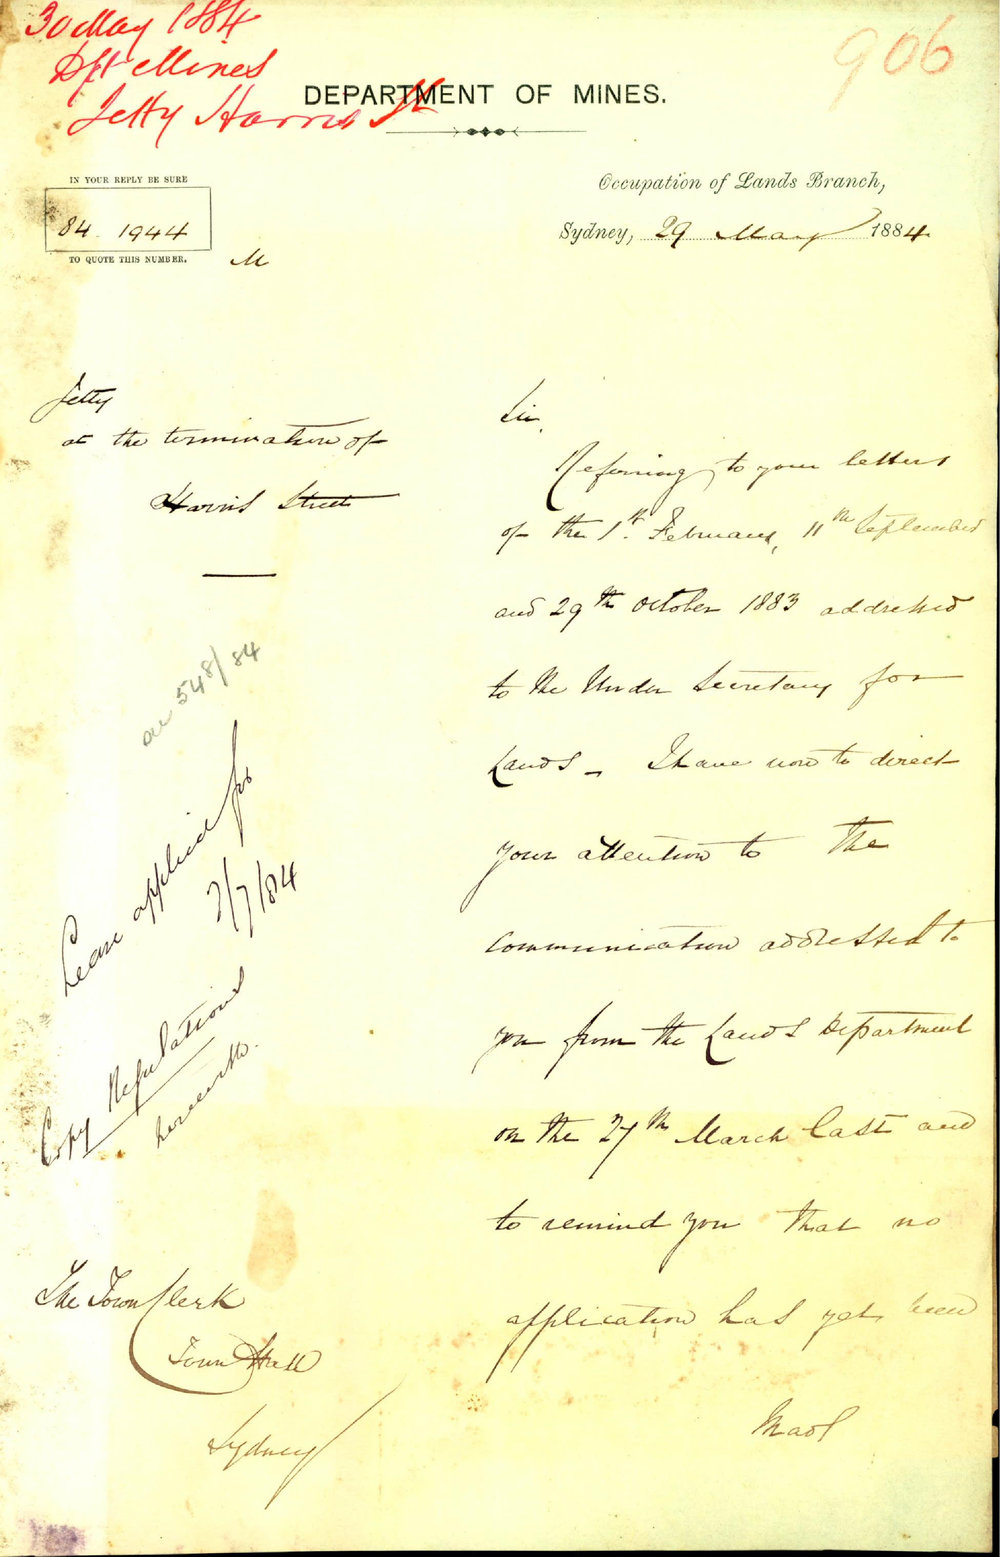 30 May 1884
Dpt Mines
Jetty Harris St
906
DEPARTMENT OF MINES.
IN YOUR REPLY BE SURE
84 1944
TO QUOTE THIS NUMBER.
M
Occupation of Lands Branch,
Sydney, 29 May 1884
Jetty
at the termination of
Harris Street
Sir,
Referring to your letters
of the 1st February, 11th September
and 29th October 1883 addressed
to the Under Secretary for
Lands - I have now to direct
your attention to the
communication addressed to
you from the Lands Department
on the 27th March last and
to remind you that no
application has yet been
made
548/84
Lease applied for
7/7/84
Copy Regulations
herewith.
The Town Clerk
Town Hall
Sydney